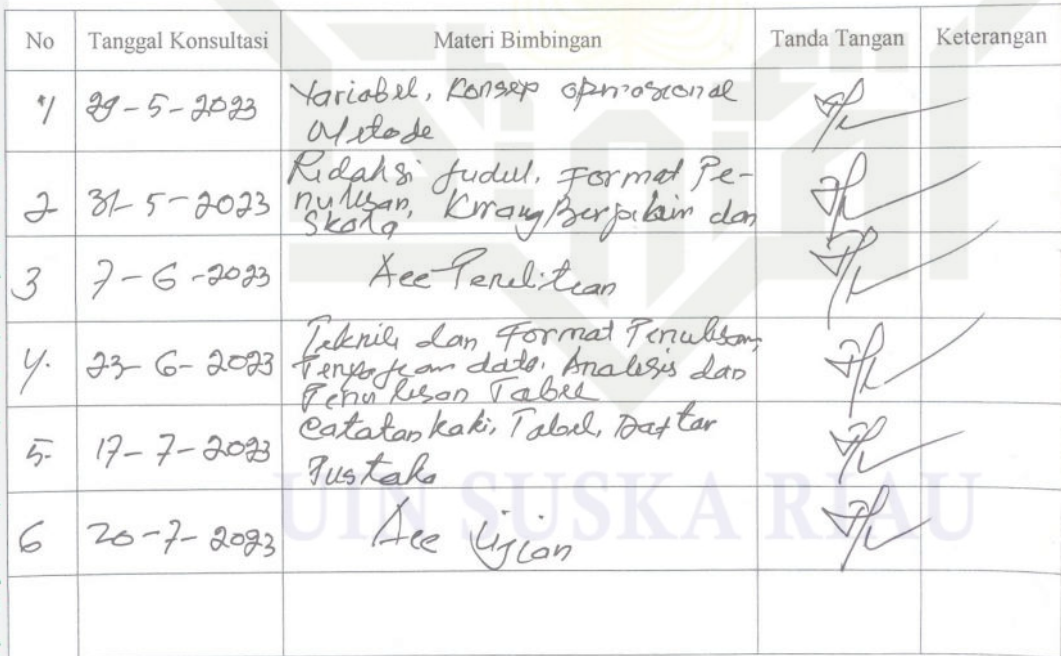 No Tanggal Konsultasi Materi Bimbingan Tanda Tangan Keterangan
1 29-5-2023 Variabel, Konsep operasional
Metode
2 31-5-2023 Ridaksi Judul, Format Pe-
nulisan, Kerangka Berpikir dan
Skala
3 7-6-2023 Acc Penelitian
4. 23-6-2023 Teknik dan Format Penulisan,
Penyajian data, Analisis dan
Penulisan Tabel
5. 17-7-2023 Catatan kaki, Tabel, Daftar
Pustaka
6 20-7-2023 Acc Ujian
UIN SUSKA RIAU